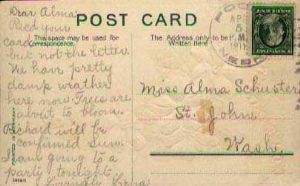 POST CARD
Dear Alma,
Recd your
card
but not the letter
This space may be used for
Correspondence.
The Address only to be
Written here
We have pretty
damp weather
here now. Trees are
about to bloom.
Richard will be
confirmed Sun.
I am going to a
party tonight
Miss Alma Schuster
St. John
Wash.
1911